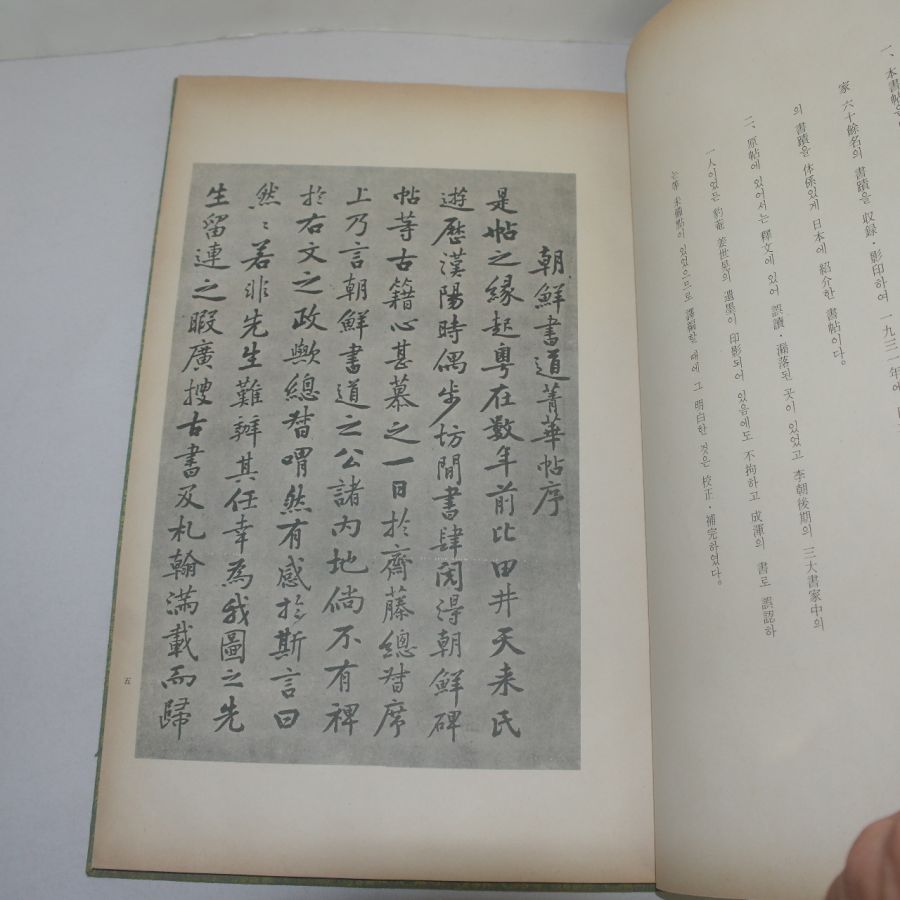 一、本書帖은
家 六十餘名의 書蹟을 収録・影印하여 一九三一年에
의 書蹟을 体係있게 日本에 紹介한 書帖이다。
二、原帖에 있어서는 釋文에 있어 誤讀・漏落된 곳이 있었고 李朝後期의 三大書家中의
一人이었든 豹菴 姜世晃의 遺墨이 印影되어 있음에도 不拘하고 成渾의 書로 誤認하
는等 未備點이 있었으므로 譯編할 때에 그 明白한 것은 校正・補完하였다。
朝鮮書道菁華帖序
是帖之縁起粤在数年前比田井天来氏
遊歴漢陽時偶步坊間書肆閲得朝鮮碑
帖等古籍心甚慕之一日於齋藤總督席
上乃言朝鮮書道之公諸内地倘不有裨
於右文之政歟總督喟然有感於斯言曰
然〻若非先生難辦其任幸為我圖之先
生留連之暇廣搜古書及札翰滿載而歸
五